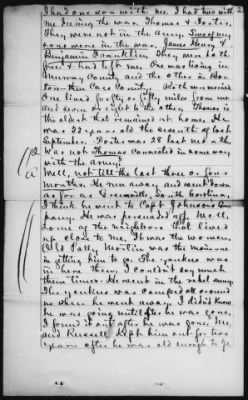 I had one son with me. I had two with
me during the war. Thomas & Foster.
They were not in the army.
sons were in the war, James Henry &
Benjamin Franklin. They went in the
first & had left me. One was living in
Murray County and the other in
Cass County. Both was married.
One lived forty or fifty miles from me
and seven or eight to the other. Thomas is
the oldest that remained at home. He
was 23 years old the seventh of last
September. Foster was 28 last month
Was not Thomas connected in some way
with the army?
Well, not till the last three or four
months. He run away, and went down
as far as Greenville, South Carolina,
I think he went to Capt Johnson's Com
pany. He was persuaded off. Well,
some of the neighbors that lived
up close to me. It was the women.
Old Patty Martin was the main one
in getting him to go. The yankees was
in here then. I couldn't say much
them times. He went in the rebel army.
The yankees was camped all around
us when he went away. I didn't know
he was going until after he was gone.
I found it out after he was gone. Me
and Russell kept him out for two
years after he was old enough to go